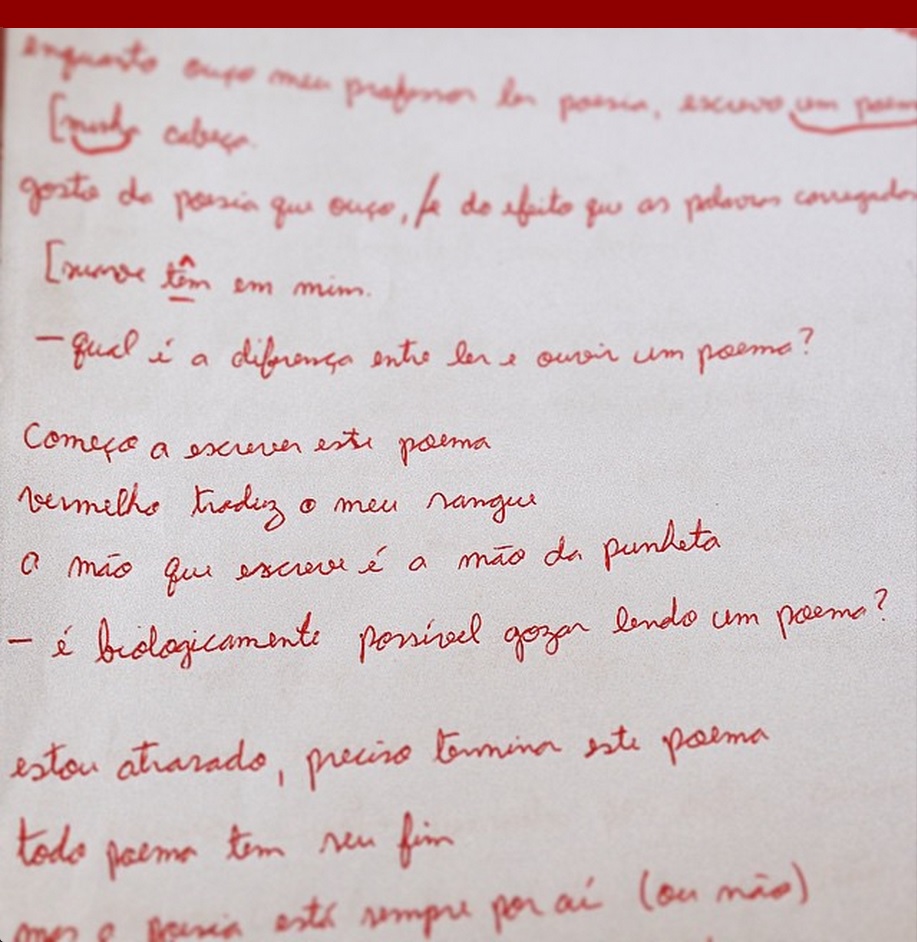 enquanto ouço meu professor ler poesia, escrevo um poem
[minha cabeça.
gosto da poesia que ouço, / e do efeito que as palavras carregadas
[têm em mim.
– qual é a diferença entre ler e ouvir um poema?
Começo a escrever este poema
vermelho traduz o meu sangue
a mão que escreve é a mão da punheta
– é biologicamente possível gozar lendo um poema?
estou atrasado, preciso terminar este poema
todo poema tem seu fim
mas a poesia está sempre por aí (ou não)